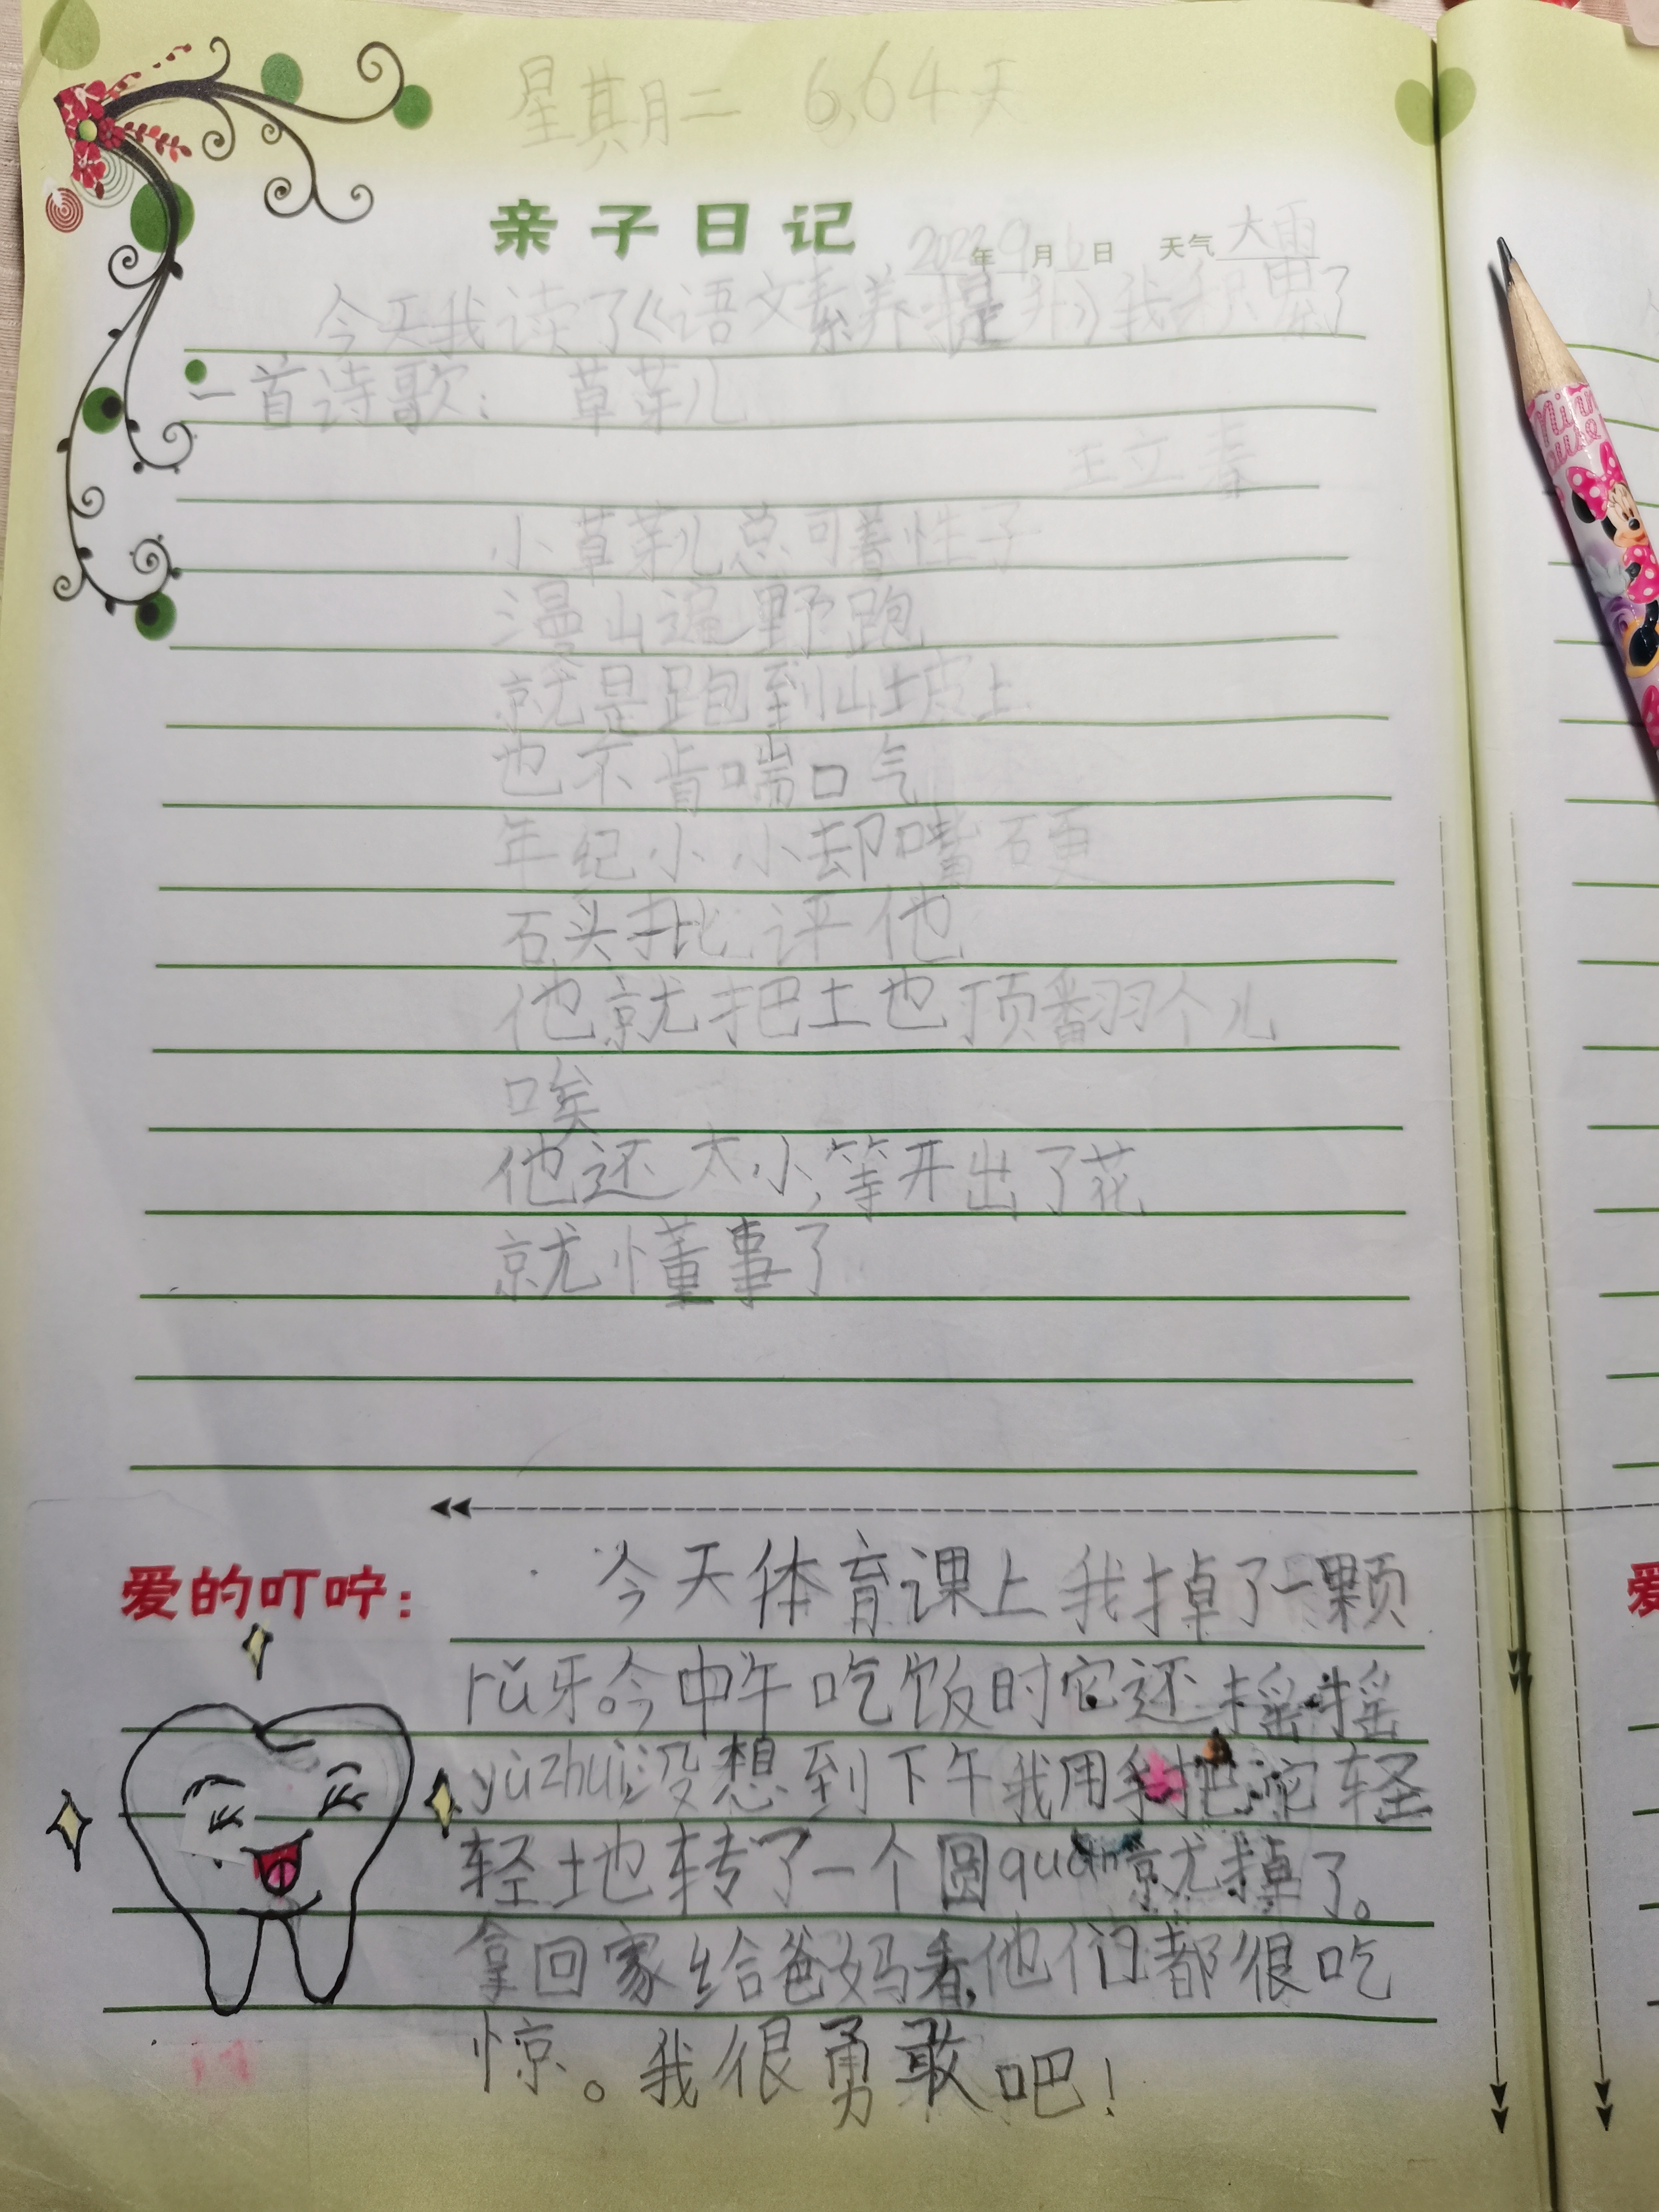 星期二 6,64天
亲子日记 2022年9月6日 天气大雨
今天我读了《语文素养提升》我积累了
一首诗歌: 草芽儿
王立春
小草芽儿总可着性子
漫山遍野跑
就是跑到山坡上
也不肯喘口气
年纪小小却嘴硬
石头批评他
他就把土也顶翻个儿
唉
他还太小,等开出了花
就懂事了
爱的叮咛: 今天体育课上我掉了一颗
rǔ牙。今中午吃饭时它还摇摇
yùzhuì,没想到下午我用手把它轻
轻土地转了一个圆quān就掉了。
拿回家给爸妈看,他们都很吃
惊。我很勇敢吧!